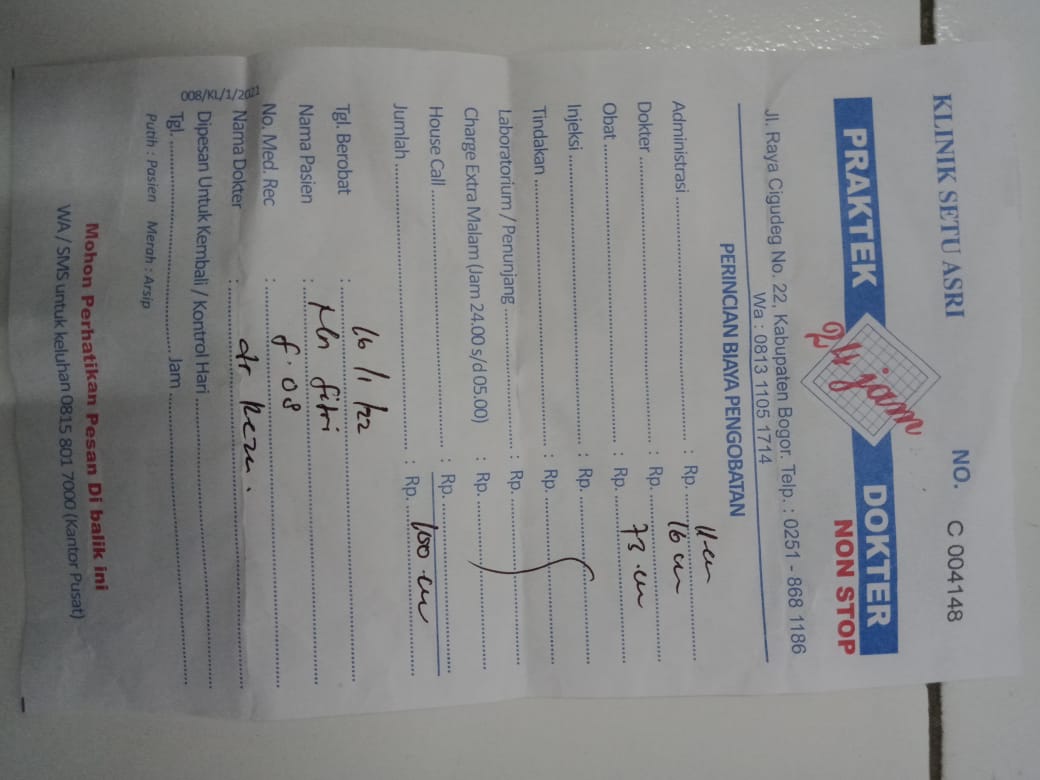 KLINIK SETU ASRI
NO. C 004148
PRAKTEK 24 jam DOKTER
NON STOP
Jl. Raya Cigudeg No. 22, Kabupaten Bogor. Telp. : 0251 - 868 1186
Wa : 0813 1105 1714
PERINCIAN BIAYA PENGOBATAN
Administrasi : Rp. 11
Dokter : Rp. 16
Obat : Rp. 73
Injeksi : Rp.
Tindakan : Rp.
Laboratorium / Penunjang : Rp.
Charge Extra Malam (Jam 24.00 s/d 05.00) : Rp.
House Call : Rp.
Jumlah : Rp. 100
Tgl. Berobat : 16/1/22
Nama Pasien : Nn fitri
No. Med. Rec : f. 08
008/KL/1/2021
Nama Dokter : dr
Dipesan Untuk Kembali / Kontrol Hari
Tgl. Jam
Putih : Pasien Merah : Arsip
Mohon Perhatikan Pesan Di balik ini
WA / SMS untuk keluhan 0815 801 7000 (Kantor Pusat)